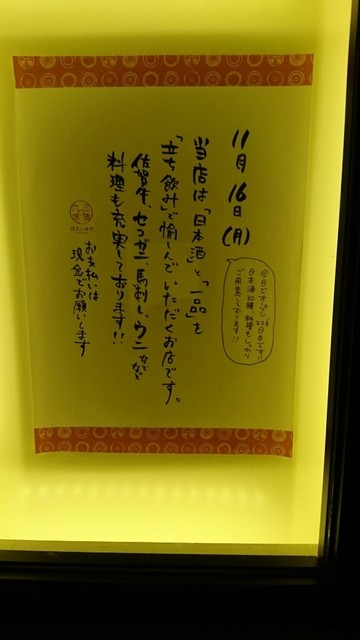 11月16日(月)
今日でオープン226日目です!!
日本酒30種、料理もしっかり
ご用意しております!!
当店は「日本酒」と「一品」を
「立ち飲み」で愉しんでいただくお店です。
佐賀牛、セコガニ、馬刺し、ウニなど
料理も充実しております!!
お支払いは
現金でお願いします